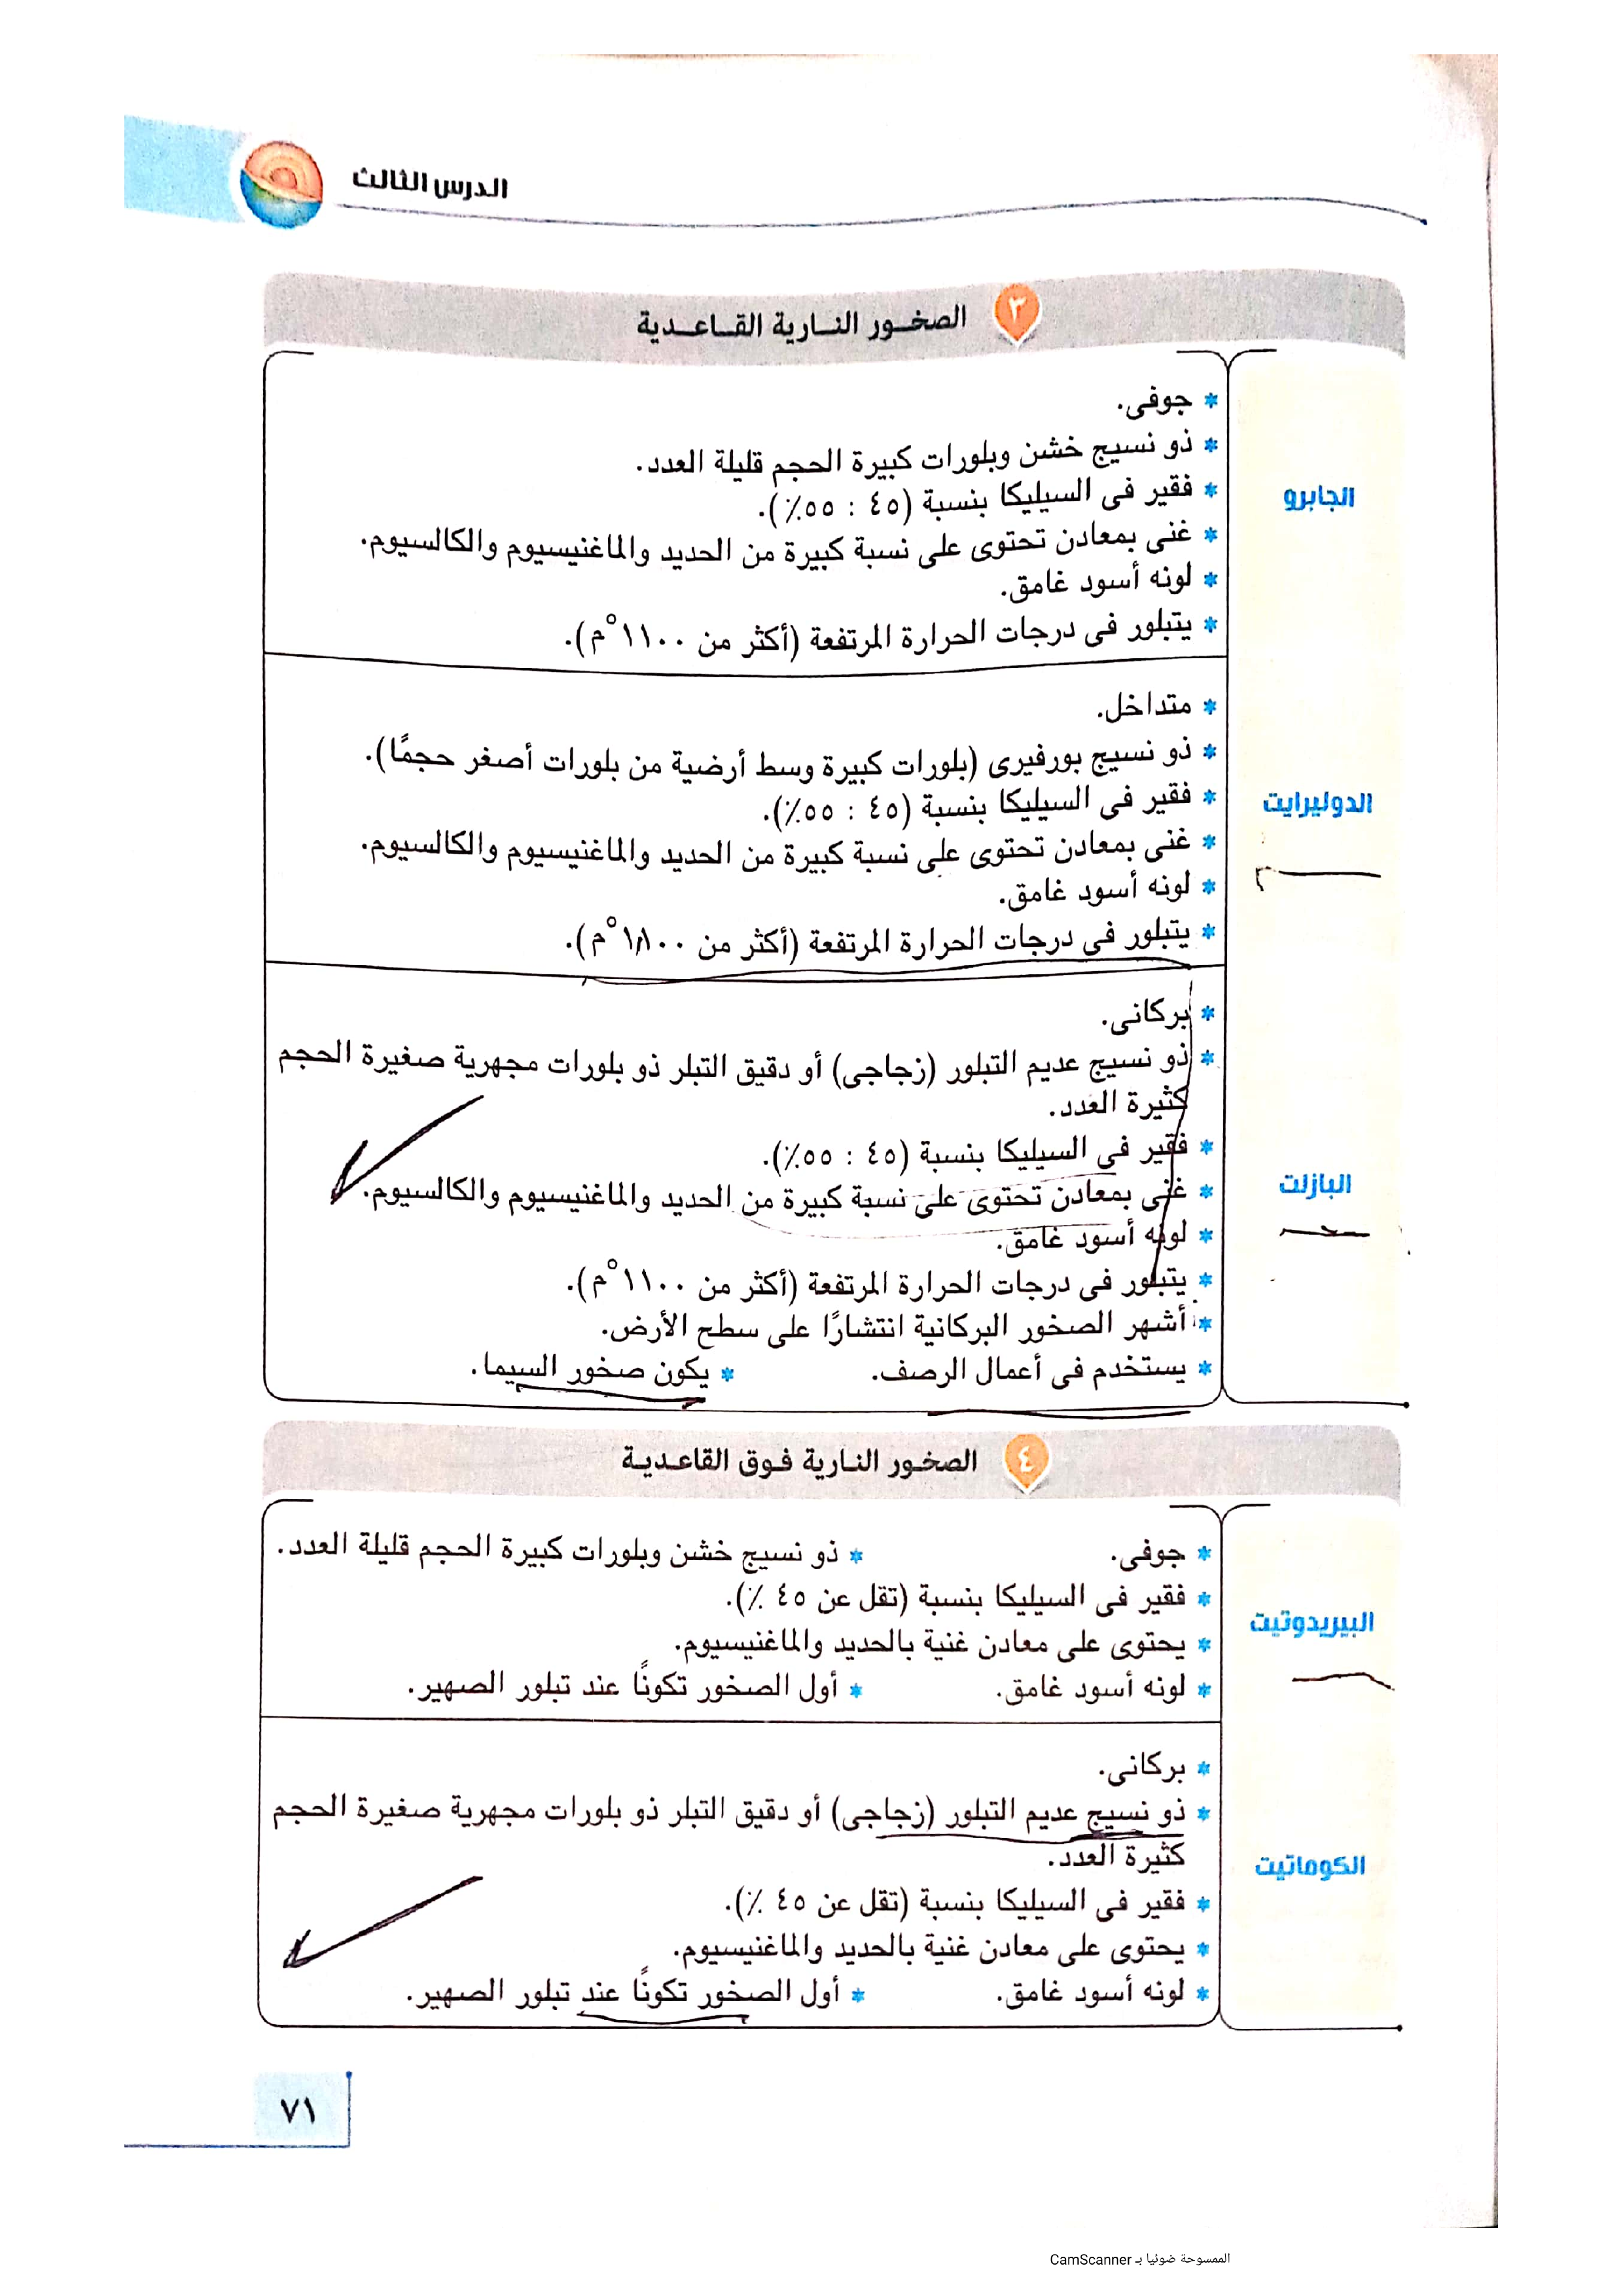 الدرس الثالث
٣ الصخور النارية القاعدية
الجابرو
* جوفى.
* ذو نسيج خشن وبلورات كبيرة الحجم قليلة العدد.
* فقير فى السيليكا بنسبة (٤٥ : ٥٥٪).
* غنى بمعادن تحتوى على نسبة كبيرة من الحديد والماغنيسيوم والكالسيوم.
* لونه أسود غامق.
* يتبلور فى درجات الحرارة المرتفعة (أكثر من ١١٠٠°م).
الدوليرايت
* متداخل.
* ذو نسيج بورفيرى (بلورات كبيرة وسط أرضية من بلورات أصغر حجمًا).
* فقير فى السيليكا بنسبة (٤٥ : ٥٥٪).
* غنى بمعادن تحتوى على نسبة كبيرة من الحديد والماغنيسيوم والكالسيوم.
* لونه أسود غامق.
* يتبلور فى درجات الحرارة المرتفعة (أكثر من ١١٠٠°م).
البازلت
* بركانى.
* ذو نسيج عديم التبلور (زجاجى) أو دقيق التبلر ذو بلورات مجهرية صغيرة الحجم
كثيرة العدد.
* فقير فى السيليكا بنسبة (٤٥ : ٥٥٪).
* غنى بمعادن تحتوى على نسبة كبيرة من الحديد والماغنيسيوم والكالسيوم.
* لونه أسود غامق.
* يتبلور فى درجات الحرارة المرتفعة (أكثر من ١١٠٠°م).
* أشهر الصخور البركانية انتشارًا على سطح الأرض.
* يستخدم فى أعمال الرصف. * يكون صخور السيما.
٤ الصخور النارية فوق القاعدية
البيريدوتيت
* جوفى. * ذو نسيج خشن وبلورات كبيرة الحجم قليلة العدد.
* فقير فى السيليكا بنسبة (تقل عن ٤٥ ٪).
* يحتوى على معادن غنية بالحديد والماغنيسيوم.
* لونه أسود غامق. * أول الصخور تكونًا عند تبلور الصهير.
الكوماتيت
* بركانى.
* ذو نسيج عديم التبلور (زجاجى) أو دقيق التبلر ذو بلورات مجهرية صغيرة الحجم
كثيرة العدد.
* فقير فى السيليكا بنسبة (تقل عن ٤٥ ٪).
* يحتوى على معادن غنية بالحديد والماغنيسيوم.
* لونه أسود غامق. * أول الصخور تكونًا عند تبلور الصهير.
٧١
الممسوحة ضوئيا بـ CamScanner